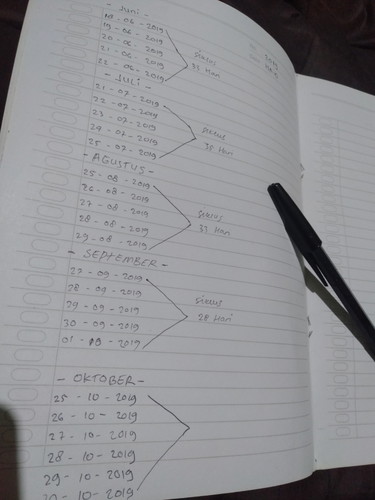 - Juni -
18 - 06 - 2019
19 - 06 - 2019
20 - 06 - 2019
21 - 06 - 2019
22 - 06 - 2019
siklus
33 Hari
- JULI -
21 - 07 - 2019
22 - 07 - 2019
23 - 07 - 2019
24 - 07 - 2019
25 - 07 - 2019
siklus
35 Hari
- AGUSTUS -
25 - 08 - 2019
26 - 08 - 2019
27 - 08 - 2019
28 - 08 - 2019
29 - 08 - 2019
siklus
33 Hari
- SEPTEMBER -
27 - 09 - 2019
28 - 09 - 2019
29 - 09 - 2019
30 - 09 - 2019
siklus
28 Hari
- OKTOBER -
25 - 10 - 2019
26 - 10 - 2019
27 - 10 - 2019
28 - 10 - 2019
29 - 10 - 2019